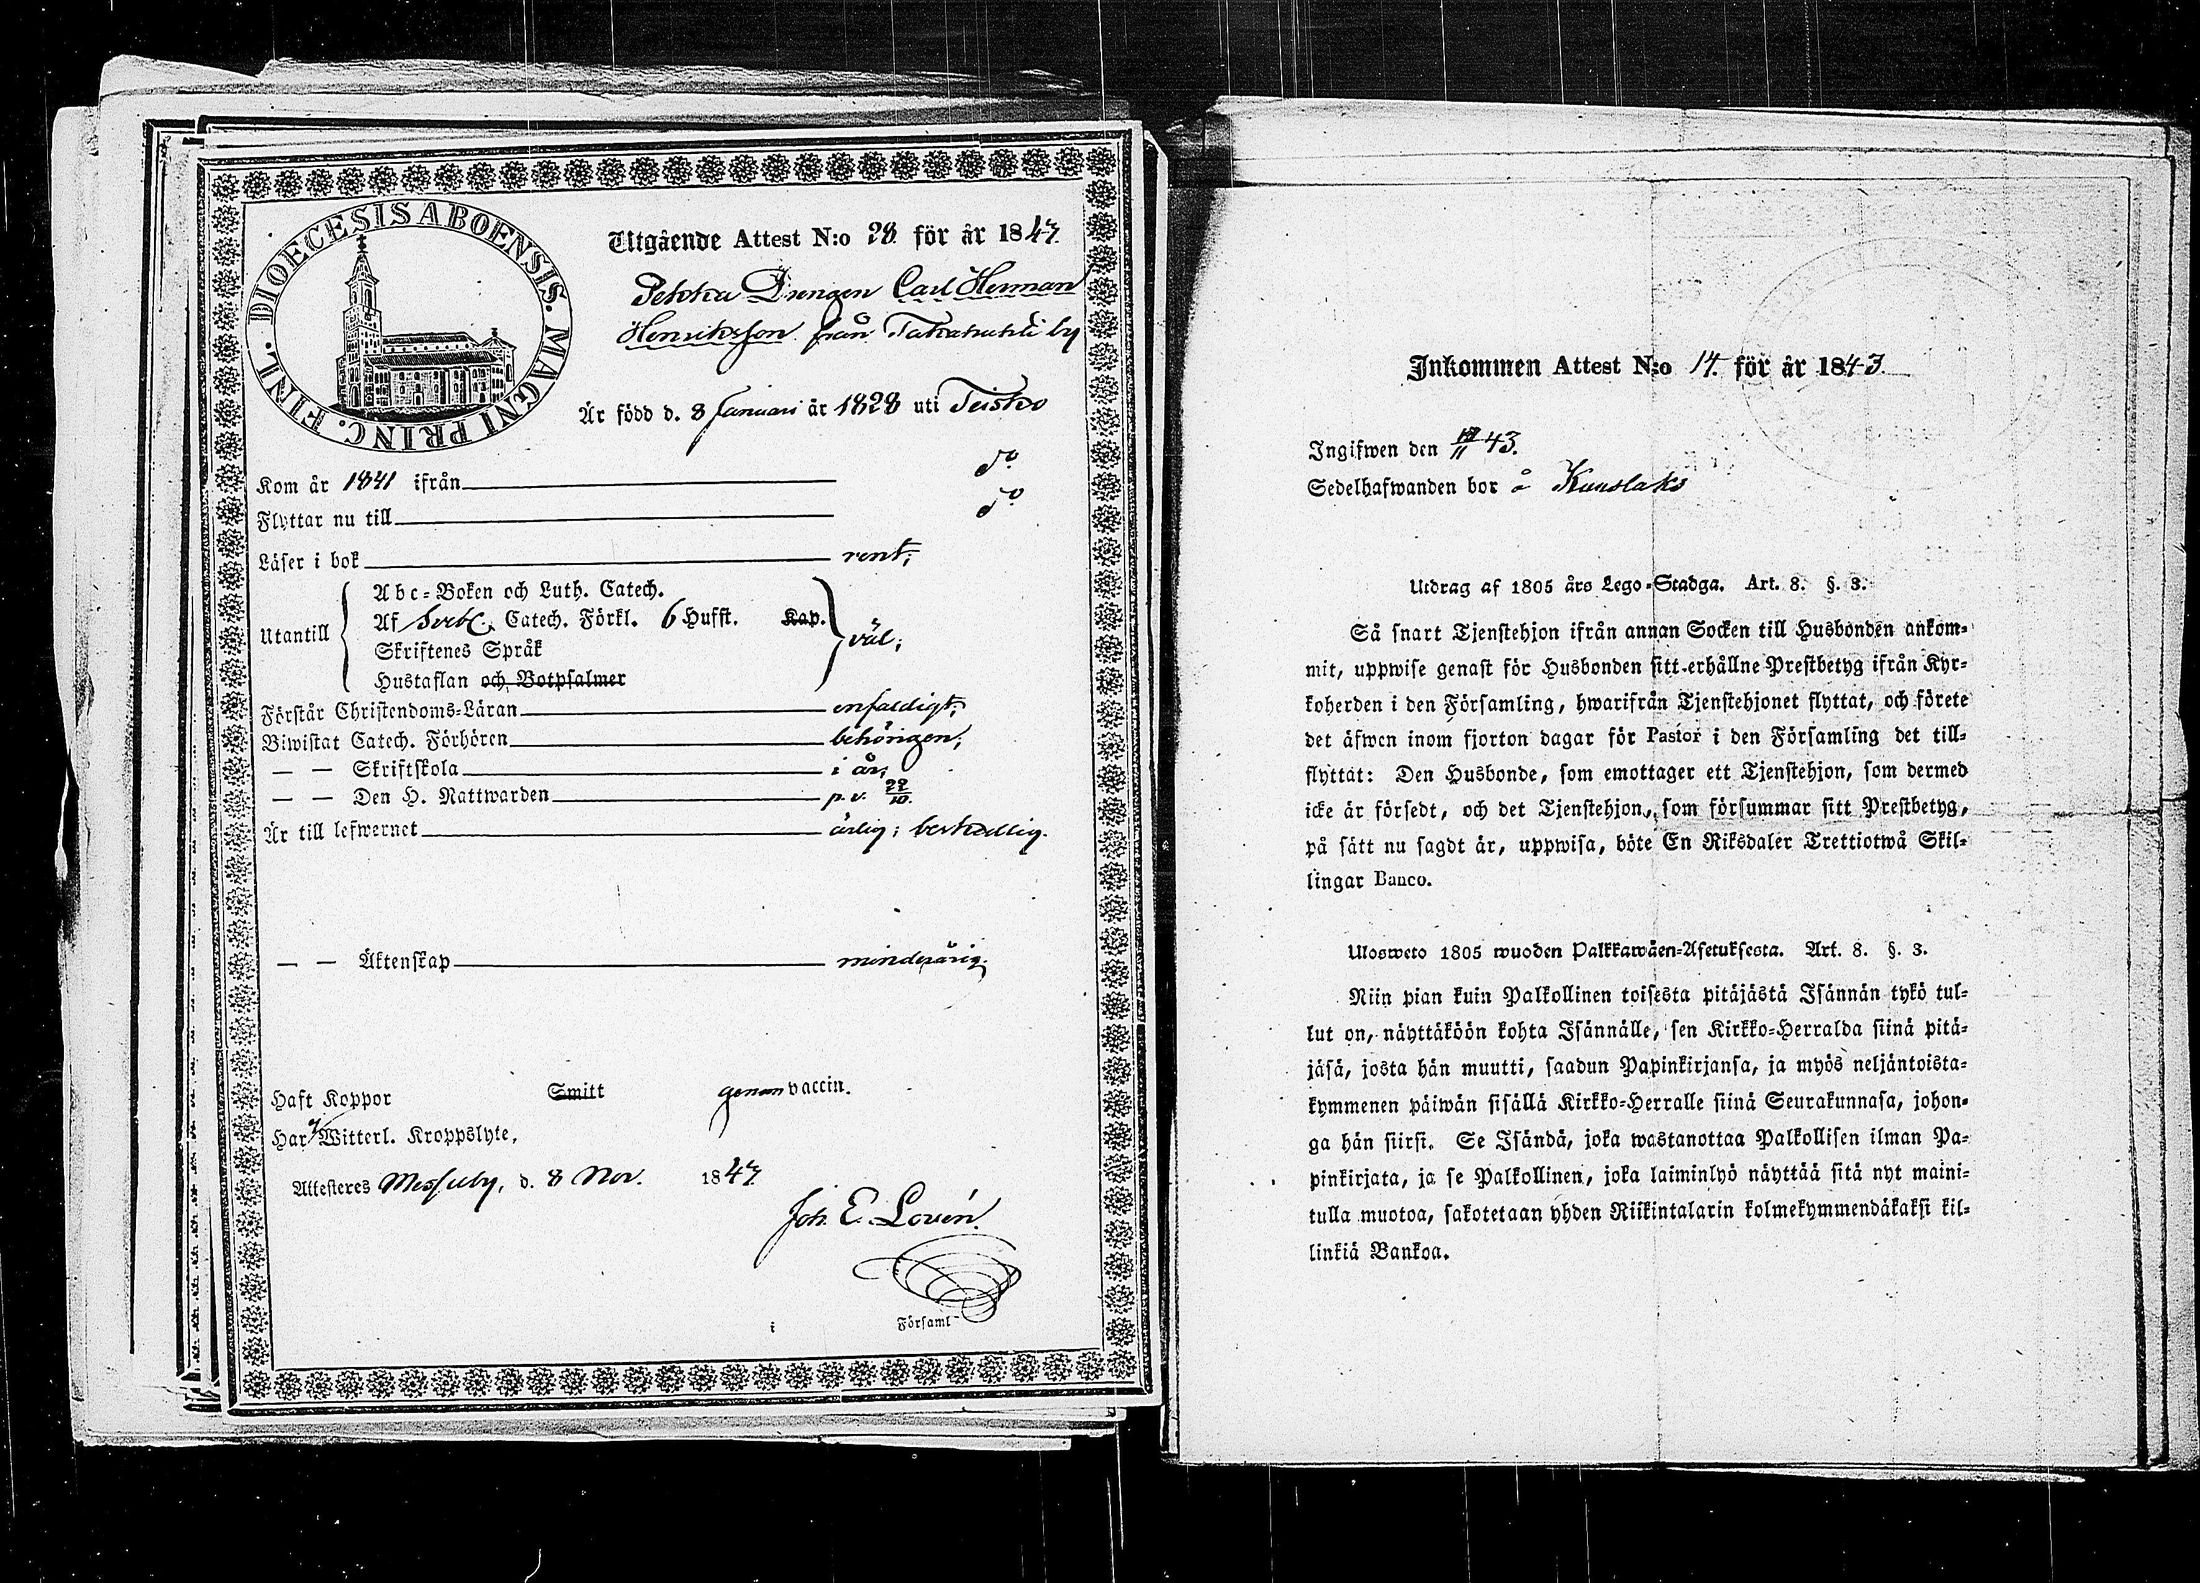 DIOECESIS ABOENSIS. MAGNI PRINC. FINL.
Utgående Attest N:o 28. för år 1847.
Drengen Carl Herman
Henriksson från Takahuhti by
Är född d. 8 Januari år 1828 uti Teisko
Kom år 1841 ifrån d:o
Flyttar nu till d:o
Läser i bok rent;
Utantill
Abc-Boken och Luth. Catech.
Af Sveb. Catech. Förkl. 6 Hufst. Kap.
Skriftenes Språk
Hustaflan och Botpsalmer
väl;
Förstår Christendoms-Läran enfaldigt;
Biwistat Catech. Förhören behörigen;
— — Skriftskola i år,
— — Den H. Nattwarden p. v. 22/10.
Är till lefwernet ärlig; beskedlig.
— — Äktenskap minderårig.
Haft Koppor Smitt genom vaccin.
Har Witterl. Kroppslyte,
Attesteres Messuby, d. 8 Nov. 1847
Joh. E. Lovén.
i Församl
Inkommen Attest N:o 14. för år 1843
Ingifwen den 43.
Sedelhafwanden bor å
Utdrag af 1805 års Lego-Stadga. Art. 8. §. 3.
Så snart Tjenstehjon ifrån annan Socken till Husbonden ankom-
mit, uppwise genast för Husbonden sitt erhållne Prestbetyg ifrån Kyr-
koherden i den Församling, hwarifrån Tjenstehjonet flyttat, och förete
det äfwen inom fjorton dagar för Pastor i den Församling det till-
flyttat: Den Husbonde, som emottager ett Tjenstehjon, som dermed
icke är försedt, och det Tjenstehjon, som försummar sitt Prestbetyg,
på sätt nu sagdt är, uppwisa, böte En Riksdaler Trettiotwå Skil-
lingar Banco.
Ulosweto 1805 wuoden Palkkawäen-Asetuksesta. Art. 8. §. 3.
Niin pian kuin Palkollinen toisesta pitäjästä Isännän tykö tul-
lut on, näyttäköön kohta Isännälle, sen Kirkko-Herralda siinä pitä-
jäsä, josta hän muutti, saadun Papinkirjansa, ja myös neljäntoista-
kymmenen päiwän sisällä Kirkko-Herralle siinä Seurakunnasa, johon-
ga hän siirsi. Se Isändä, joka wastanottaa Palkollisen ilman Pa-
pinkirjata, ja se Palkollinen, joka laiminlyö näyttää sitä nyt maini-
tulla muotoa, sakotetaan yhden Riikintalarin kolmekymmendäkaksi kil-
linkiä Bankoa.